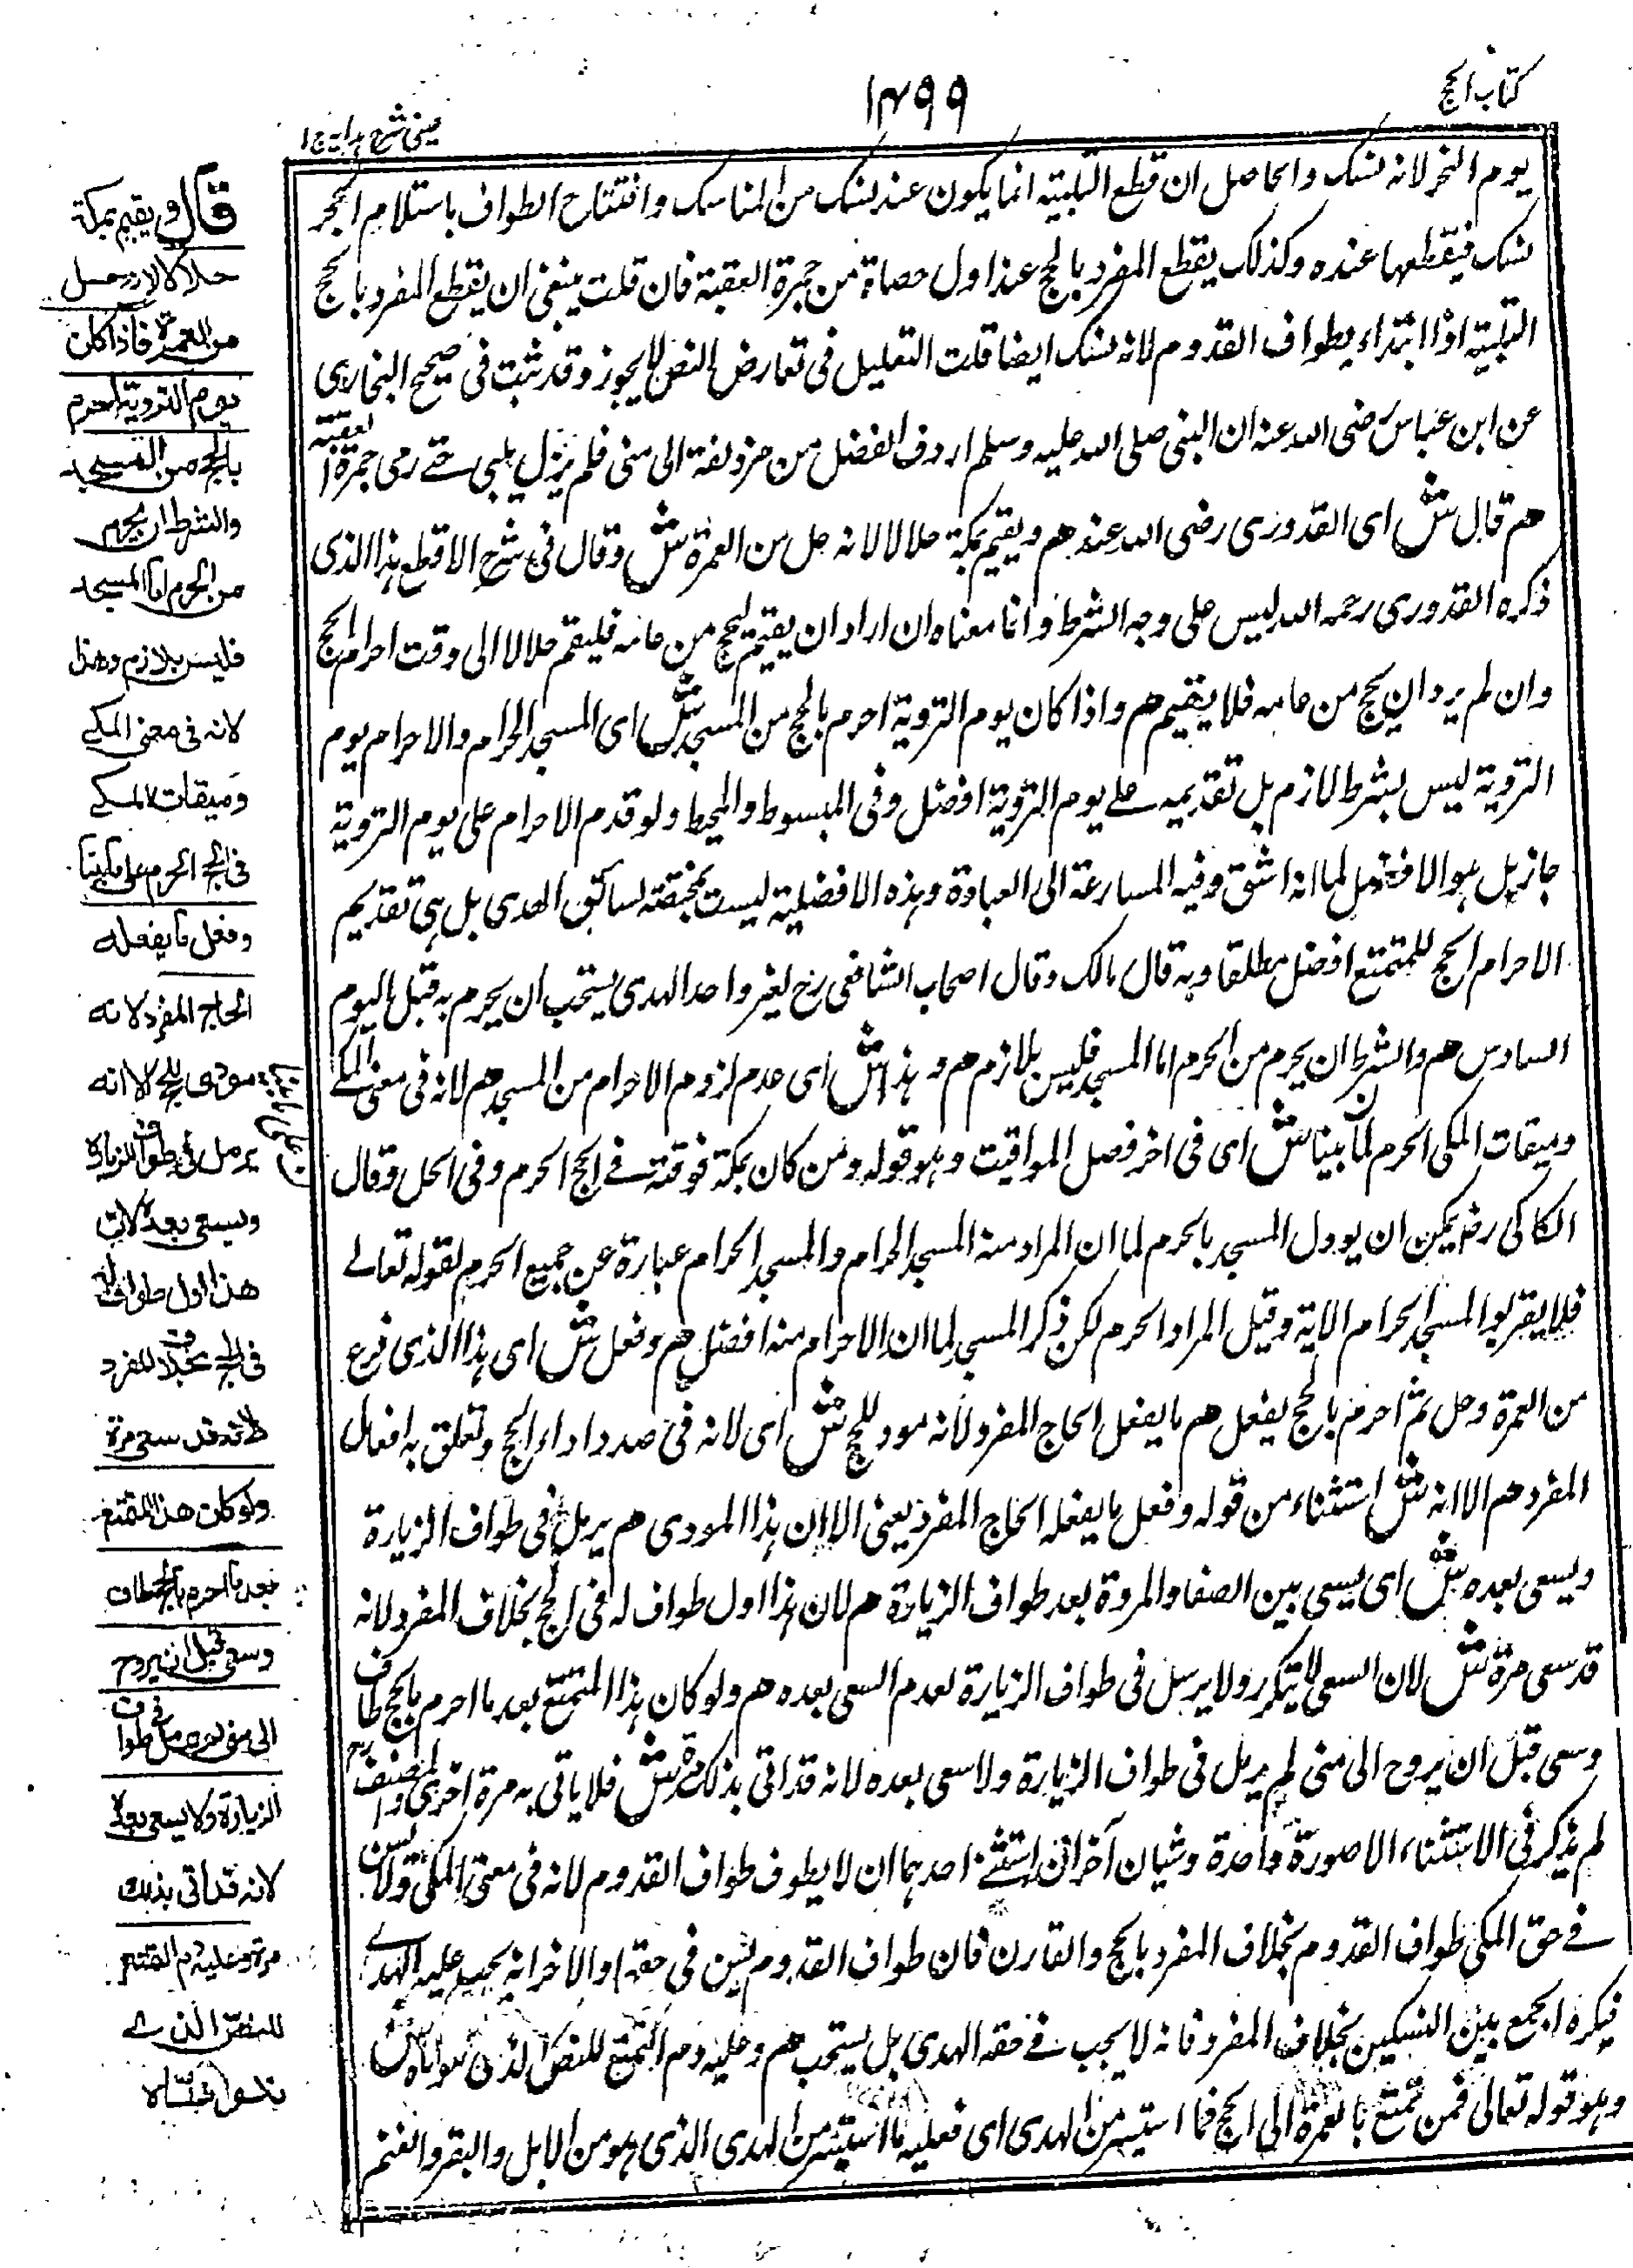 كتاب الحج
١٣٩٩
عينى شرح هدايه ج ١
يوم النحر لانه نسك والحاصل ان قطع التلبية انما يكون عند نسك من المناسك وافتتاح الطواف باستلام الحجر
نسك فيقطعها عنده وكذلك يقطع المفرد بالحج عند اول حصاة من جمرة العقبة فان قلت ينبغى ان يقطع المفرد بالحج
التلبية اذا ابتداء بطواف القدوم لانه نسك ايضا قلت التعليل فى تعارض النص لا يجوز وقد ثبت فى صحيح البخارى
عن ابن عباس رضى الله عنه ان النبى صلى الله عليه وسلم اردف الفضل من مزدلفة الى منى فلم يزل يلبى حتے رمى جمرة العقبة
هم قال ش اى القدورى رضى الله عنه هم ويقيم بمكة حلالا لانه حل من العمرة ش وقال فى شرح الاقطع هذا الذى
ذكره القدورى رحمه الله ليس على وجه الشرط وانما معناه ان اراد ان يقيم ليحج من عامه فليقم حلالا الى وقت احرام الحج
وان لم يرد ان يحج من عامه فلا يقيم هم واذا كان يوم التروية احرم بالحج من المسجد ش اى المسجد الحرام والاحرام يوم
التروية ليس بشرط لازم بل تقديمه علے يوم التروية افضل وفى المبسوط والمحيط ولو قدم الاحرام على يوم التروية
جاز بل هو الافضل لما انه اشق وفيه المسارعة الى العبادة وهذه الافضلية ليست بمختصة لسائق الهدى بل هى تقديم
الاحرام الحج للمتمتع افضل مطلقا وبه قال مالك وقال اصحاب الشافعى رح لغير واجد الهدى يستحب ان يحرم به قبل اليوم
السادس هم والشرط ان يحرم من الحرم اما المسجد فليس بلازم هم وهذا ش اى عدم لزوم الاحرام من المسجد هم لانه فى معنى المكے
وميقات المكى الحرم لما بينا ش اى فى اخر فصل المواقيت وهو قوله ومن كان بمكة فوقته فے الحج الحرم وفى الحل وقال
الكاكى رضـ يمكن ان يودل المسجد بالحرم لما ان المراد منه المسجد الحرام والمسجد الحرام عبارة عن جميع الحرم لقوله تعالے
فلا يقربوا المسجد الحرام الاية وقيل المراد الحرم لكن ذكر المسجد لما ان الاحرام منه افضل هم وفعل ش اى هذا الذى فرغ
من العمرة وحل ثم احرم بالحج يفعل هم ما يفعل الحاج المفرد لانه مود للحج ش اى لانه فى صدد اداء الحج وتعلق به افعال
المفرد هم الا انه ش استثناء من قوله وفعل ما يفعله الحاج المفرد يعنى الا ان هذا المودى هم يرمل فى طواف الزيارة
ويسعى بعده ش اى يسعى بين الصفا والمروة بعد طواف الزيارة هم لان هذا اول طواف له فى الحج بخلاف المفرد لانه
قد سعى مرة ش لان السعى لا يتكرر ولا يرمل فى طواف الزيارة لعدم السعى بعده هم ولو كان هذا المتمتع بعد ما احرم بالحج طاف
وسعى قبل ان يروح الى منى لم يرمل فى طواف الزيارة ولا سعى بعده لانه قد اتى بذلك مرة ش فلا ياتى به مرة اخرى والمصنف رح
لم يذكر فى الاستثناء الا صورة واحدة وشيان آخران استثنے احدهما ان لا يطوف طواف القدوم لانه فى معنى المكى ولا يسن
فے حق المكى طواف القدوم بخلاف المفرد بالحج والقارن فان طواف القدوم يسن فى حقه او الاخر انه يجب عليه الهدے
فيكره الجمع بين النسكين بخلاف المفرد فانه لا يجب فے حقه الهدى بل يستحب هم وعليه دم التمتع للنص الذى تلوناه ش
وهو قوله تعالى فمن تمتع بالعمرة الى الحج فما استيسر من الهدى اى فعليه ما استيسر من الهدى الذى هو من الابل والبقر والغنم
قال ويقيم بمكة
حلالا لانه حل
من العمرة فاذا كان
يوم التروية احرم
بالحج من المسجد
والشرط ان يحرم
من الحرم اما المسجد
فليس بلازم وهذا
لانه فى معنى المكے
وميقات المكے
فى الحج الحرم على ما بينا
وفعل ما يفعله
الحاج المفرد لانه
مودى للحج الا انه
يرمل فى طواف الزيارة
ويسعى بعده لان
هذا اول طواف له
فى الحج بخلاف المفرد
لانه قد سعى مرة
ولو كان هذا المتمتع
بعد ما احرم بالحج طاف
وسعى قبل ان يروح
الى منى لم يرمل فى طواف
الزيارة ولا يسعى بعده
لانه قد اتى بذلك
مرة وعليه دم التمتع
للنص الذے
تلوناه